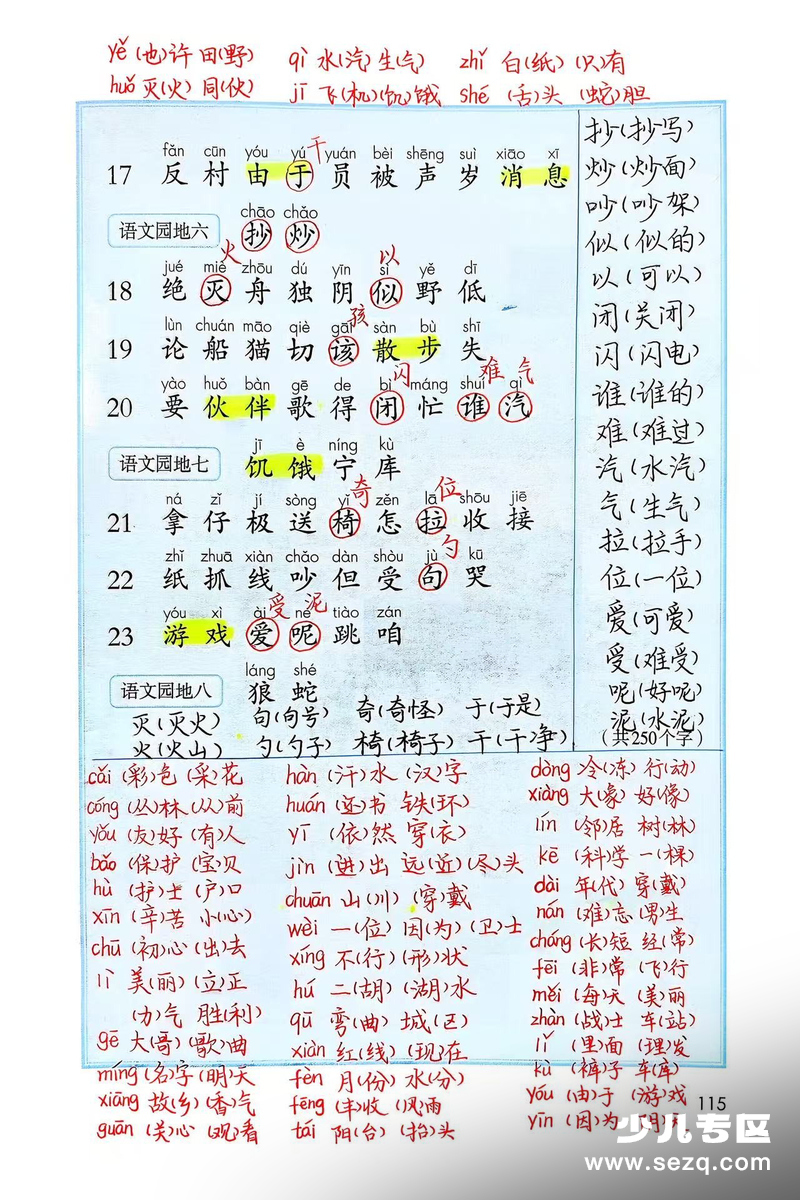 yě (也)许 田(野) qì 水(汽)生(气) zhǐ 白(纸) (只)有
huǒ 灭(火) 同(伙) jī 飞(机)(饥)饿 shé (舌)头 (蛇)胆
fǎn cūn yóu yú yuán bèi shēng suì xiāo xī
干
17 反 村 由 于 员 被 声 岁 消 息
chāo chǎo
语文园地六 抄 炒
火 以
jué miè zhōu dú yīn sì yě dī
18 绝 灭 舟 独 阴 似 野 低
孩
lùn chuán māo qiè gāi sàn bù shī
19 论 船 猫 切 该 散 步 失
闪 难 气
yào huǒ bàn gē de bì máng shuí qì
20 要 伙 伴 歌 得 闭 忙 谁 汽
jī è níng kù
语文园地七 饥 饿 宁 库
奇 位
ná zǐ jí sòng yǐ zěn lā shōu jiē
21 拿 仔 极 送 椅 怎 拉 收 接
勺
zhǐ zhuā xiàn chǎo dàn shòu jù kū
22 纸 抓 线 吵 但 受 句 哭
受 泥
yóu xì ài ne tiào zán
23 游 戏 爱 呢 跳 咱
láng shé
语文园地八 狼 蛇
灭(灭火) 句(句号) 奇(奇怪) 于(于是)
火(火山) 勺(勺子) 椅(椅子) 干(干净)
抄(抄写)
炒(炒面)
吵(吵架)
似(似的)
以(可以)
闭(关闭)
闪(闪电)
谁(谁的)
难(难过)
汽(水汽)
气(生气)
拉(拉手)
位(一位)
爱(可爱)
受(难受)
呢(好呢)
泥(水泥)
(共250个字)
cǎi (彩)色 (采)花
cóng (丛)林 (从)前
yǒu (友)好 (有)人
bǎo (保)护 (宝)贝
hù (护)士 (户)口
xīn (辛)苦 小(心)
chū (初)心 (出)去
lì 美(丽) (立)正
(力)气 胜(利)
gē 大(哥) (歌)曲
míng (名)字 (明)天
xiāng 故(乡) (香)气
guān (关)心 (观)看
hàn (汗)水 (汉)字
huán (还)书 铁(环)
yī (依)然 穿(衣)
jìn (进)出 远(近) (尽)头
chuān 山(川) (穿)戴
wèi 一(位) 因(为) (卫)士
xíng 不(行) (形)状
hú 二(胡) (湖)水
qū 弯(曲) 城(区)
xiàn 红(线) (现)在
fèn 月(份) 水(分)
fēng (丰)收 (风)雨
tái 阳(台) (抬)头
dòng 冷(冻) 行(动)
xiàng 大(象) 好(像)
lín (邻)居 树(林)
kē (科)学 一(棵)
dài 年(代) 穿(戴)
nán (难)忘 (男)生
cháng (长)短 经(常)
fēi (非)常 (飞)行
měi (每)天 (美)丽
zhàn (战)士 车(站)
lǐ (里)面 (理)发
kù (裤)子 车(库)
yóu (由)于 (游)戏
yīn (因)为 (阴)
115
少儿专区
www.sezq.com